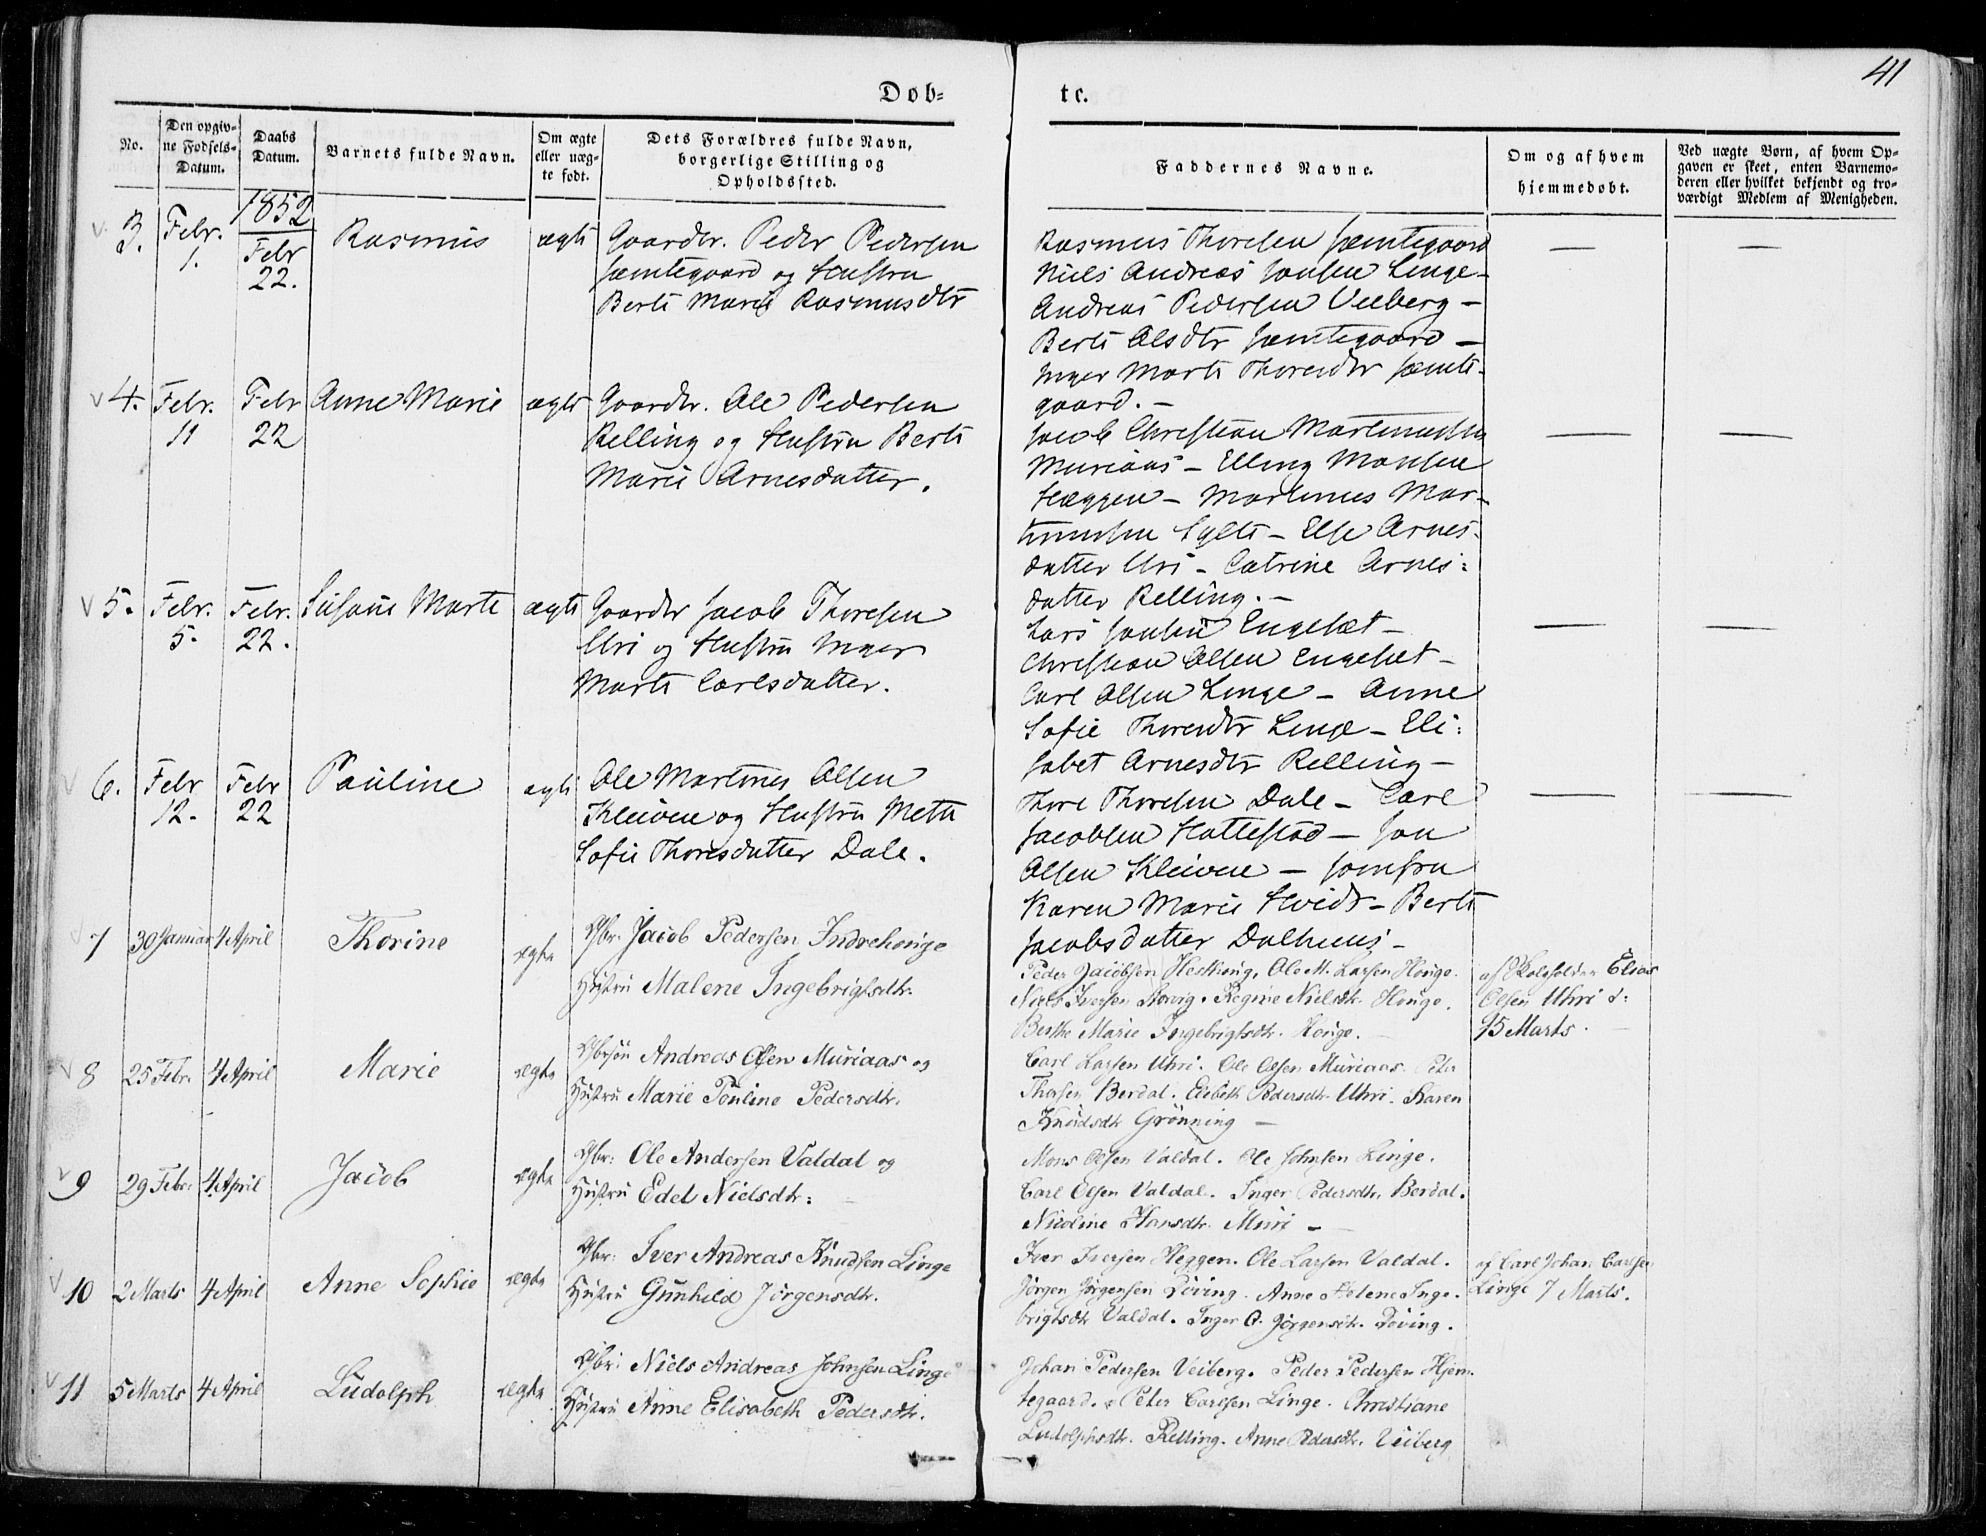 41
Døb=
te.
No.
Den opgiv=
ne Fødsels=
Datum.
Daabs
Datum.
Barnets fulde Navn.
Om ægte
eller uæg=
te født.
Dets Forældres fulde Navn,
borgerlige Stilling og
Opholdssted.
Faddernes Navne.
Om og af hvem
hjemmedøbt.
Ved uægte Børn, af hvem Op=
gaven er skeet, enten Barnemo=
deren eller hvilket bekjendt og tro=
værdigt Medlem af Menigheden.
1852
3. Febr. 1. Febr 22. Rasmus ægte
Gaardbr. Peder Pedersen
Jæmtegaard og Hustru
Berte Marie Rasmusdtr
Rasmus Thoresen Jæmtegaard
Niels Andreas Jonsen Linge -
Andreas Pedersen Veiberg -
Berte Olsdtr Jæmtegaard -
Inger Marte Thoresdtr Jæmte-
gaard. -
4. Febr. 11 Febr 22 Anne Marie ægte
Gaardbr. Ole Pedersen
Relling og Hustru Berte
Marie Arnesdatter.
Jacob Christian Martinussen
Muriaas - Elling Monsen
Hæggen - Martinus Mar-
tinussen Sylte - Else Arnes-
datter Uri - Catrine Arnes:
datter Relling. -
5. Febr. 5. Febr. 22. Susane Marte ægte
Gaardbr Jacob Thoresen
Uri og Hustru Inger
Marte Carlsdatter.
Lars Jonsen Engeset -
Christian Olsen Engeset -
Carl Olsen Linge - Anne
Sofie Thoresdtr Linge - Eli:
sabet Arnesdtr Relling -
6. Febr 12. Febr 22 Pauline ægte
Ole Martinus Olsen
Kleiven og Hustru Mette
Sofie Thoresdatter Dale.
Thore Thoresen Dale - Carl
Jacobsen Hattestad - Jon
Olsen Kleiven - Jomfru
Karen Marie Hvidt - Berte
Jacobsdatter Dalhuus -
7 30 Januar 4 April Thorine ægte
Gbr. Jacob Pedersen Indrehonge
Hustru Malene Ingebrigtsdtr.
Peder Jacobsen Hesthong, Ole M. Larsen Honge.
Niels Iversen Storvig. Regine Nielsdtr. Honge.
Berthe Marie Ingebrigtsdtr. Honge. -
af Skoleholder Elias
Olsen Uhri d:
15 Marts.
8 25 Febr. 4 April Marie ægte
Gbrsøn Andreas Olsen Muriaas og
Hustru Marie Pouline Pedersdtr.
Carl Larsen Uhri. Ole Olsen Muriaas. Peter
Thorsen Berdal. Elisbeth Pedersdtr. Uhri. Karen
Knudsdtr Grønning -
9 29 Febr. 4 April Jacob ægte
Gbr: Ole Andersen Valdal og
Hustru Edel Nielsdtr: -
Mons Olsen Valdal. Ole Johnsen Linge.
Carl Olsen Valdal. Inger Pedersdtr. Berdal.
Nicoline Hansdtr. Muri -
10 2 Marts 4 April Anne Sophie ægte
Gbr: Iver Andreas Knudsen Linge
Hustru Gunhild Jørgensdtr.
Iver Iversen Heggen. Ole Larsen Valdal.
Jørgen Jørgensen Døving. Anne Helene Inge-
brigtsdtr Valdal. Inger O. Jørgensdtr. Døving.
af Carl Johan Carlsen
Linge 7 Marts.
11 5 Marts 4 April Ludolph ægte
Gbr: Niels Andreas Johnsen Linge
Hustru Anne Elisabeth Pedersdtr.
Johan Pedersen Veiberg. Peder Pedersen Hjem-
tegaard. Peter Carlsen Linge. Christiane
Ludolphsdtr. Relling. Anne Pedersdtr. Veiberg